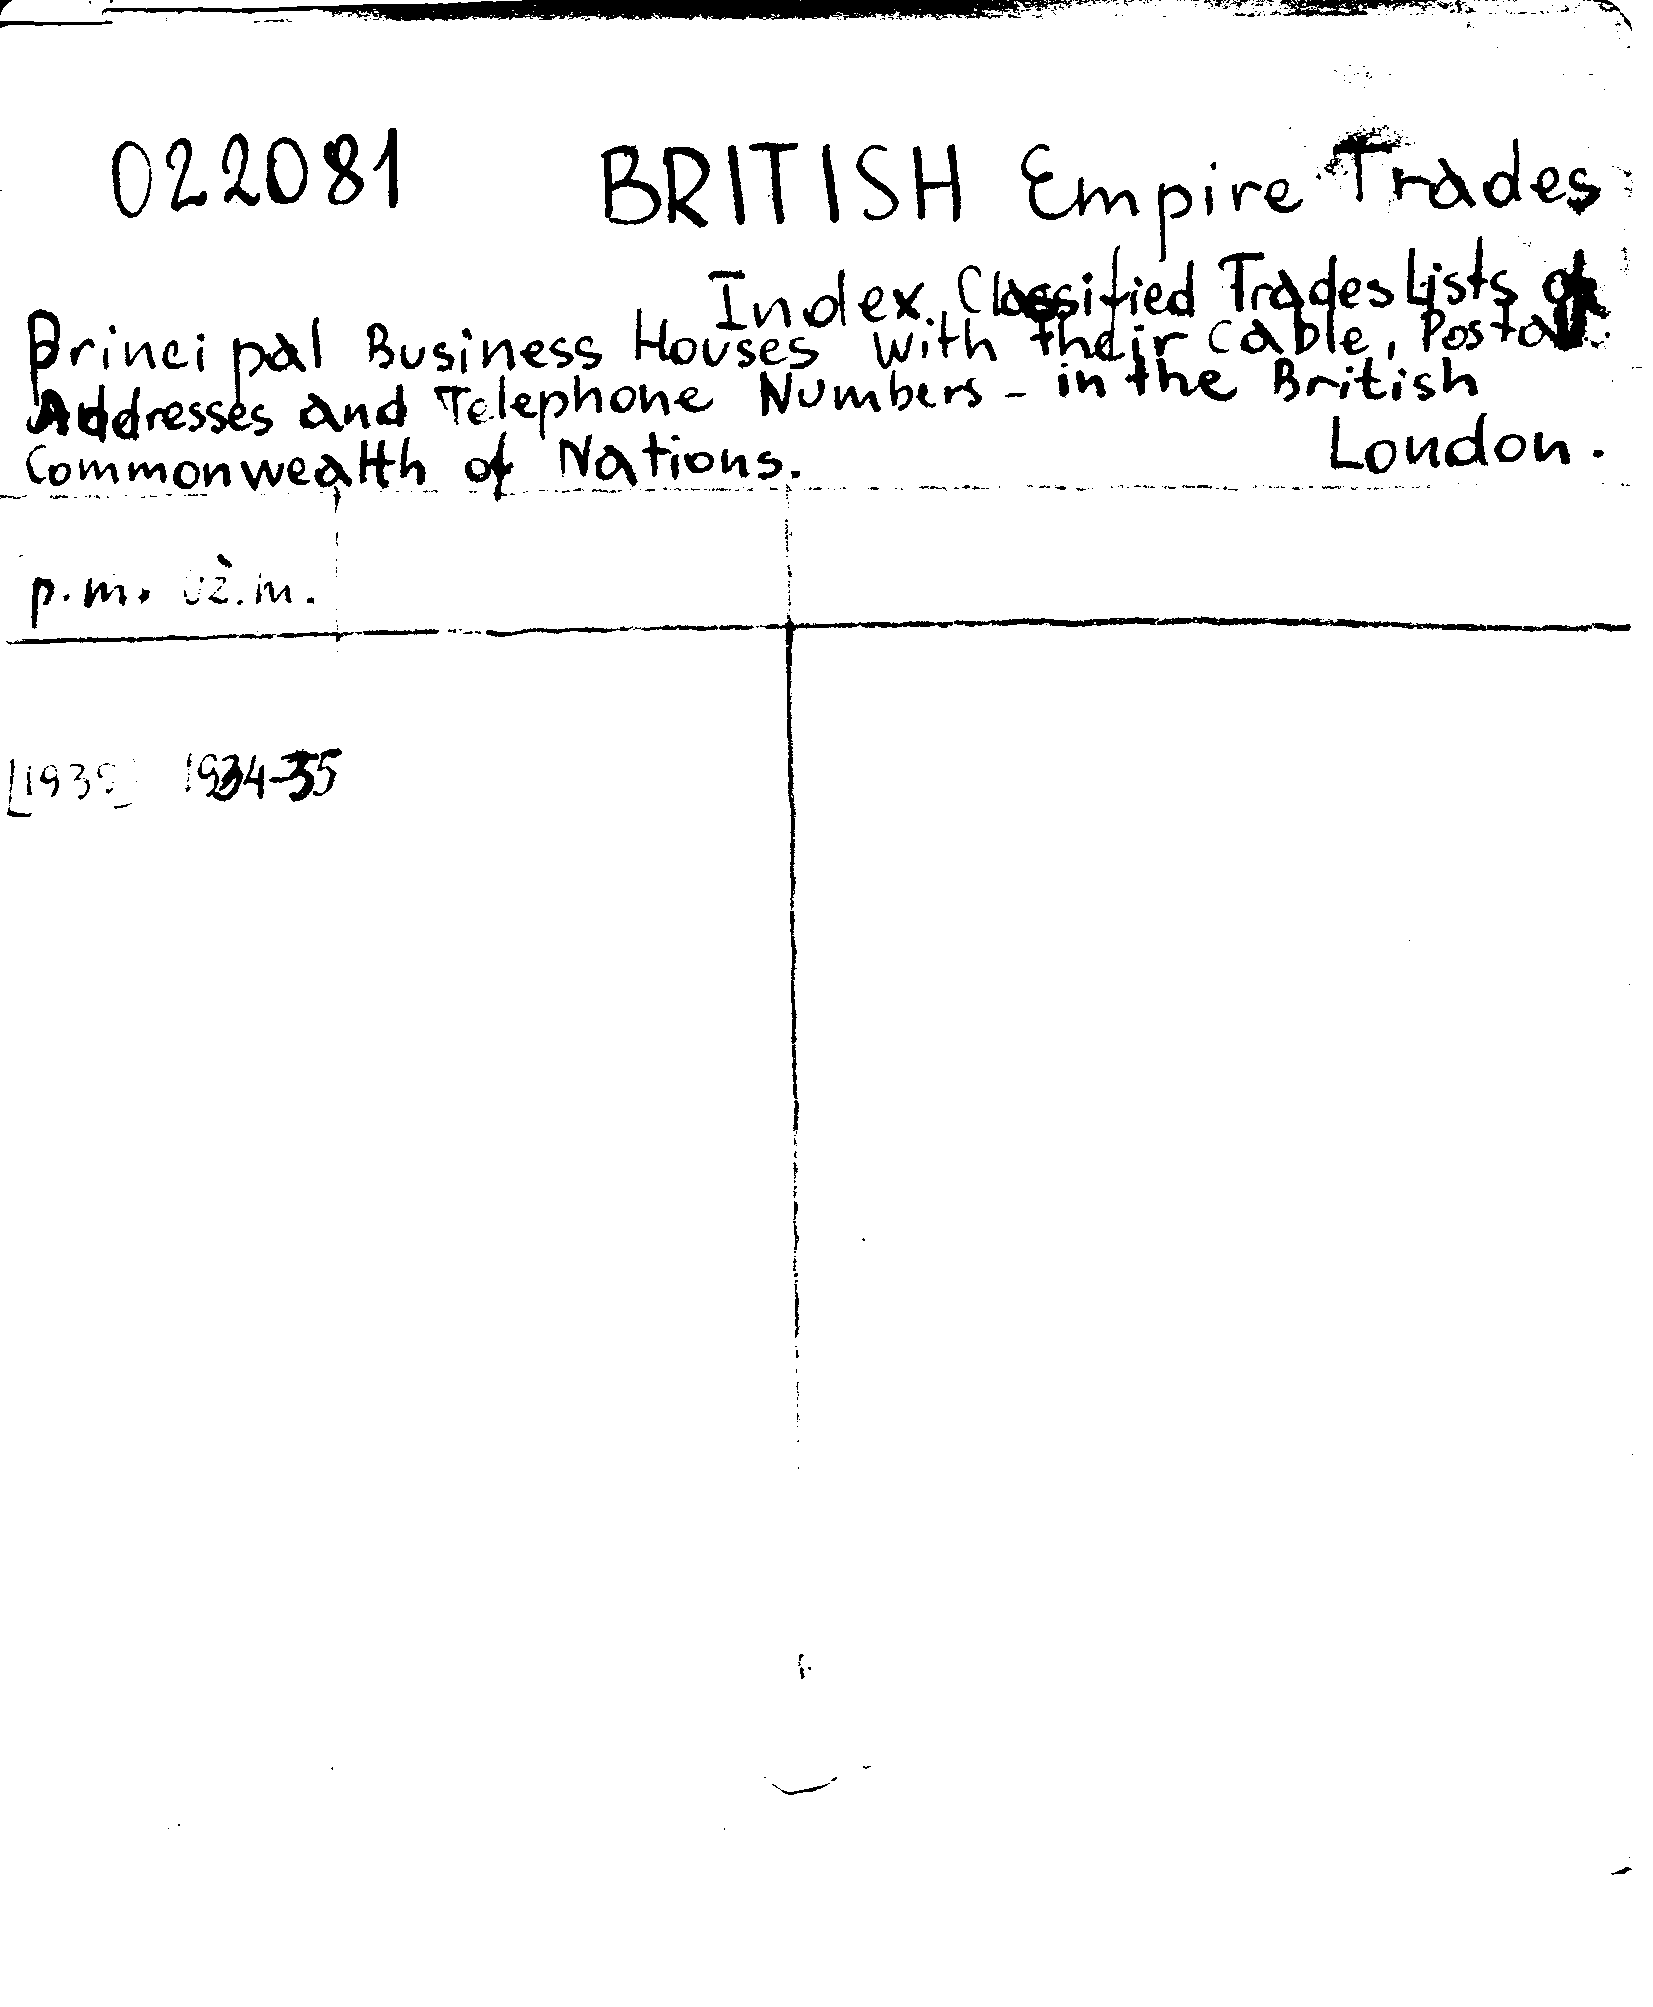 022081 BRITISH Empire Trades
Index. Classified Trades Lists of
Principal Business Houses with their Cable, Postal
Addresses and Telephone Numbers - in the British
Commonwealth of Nations. London.
p.m. už.m.
[1935] 1934-35